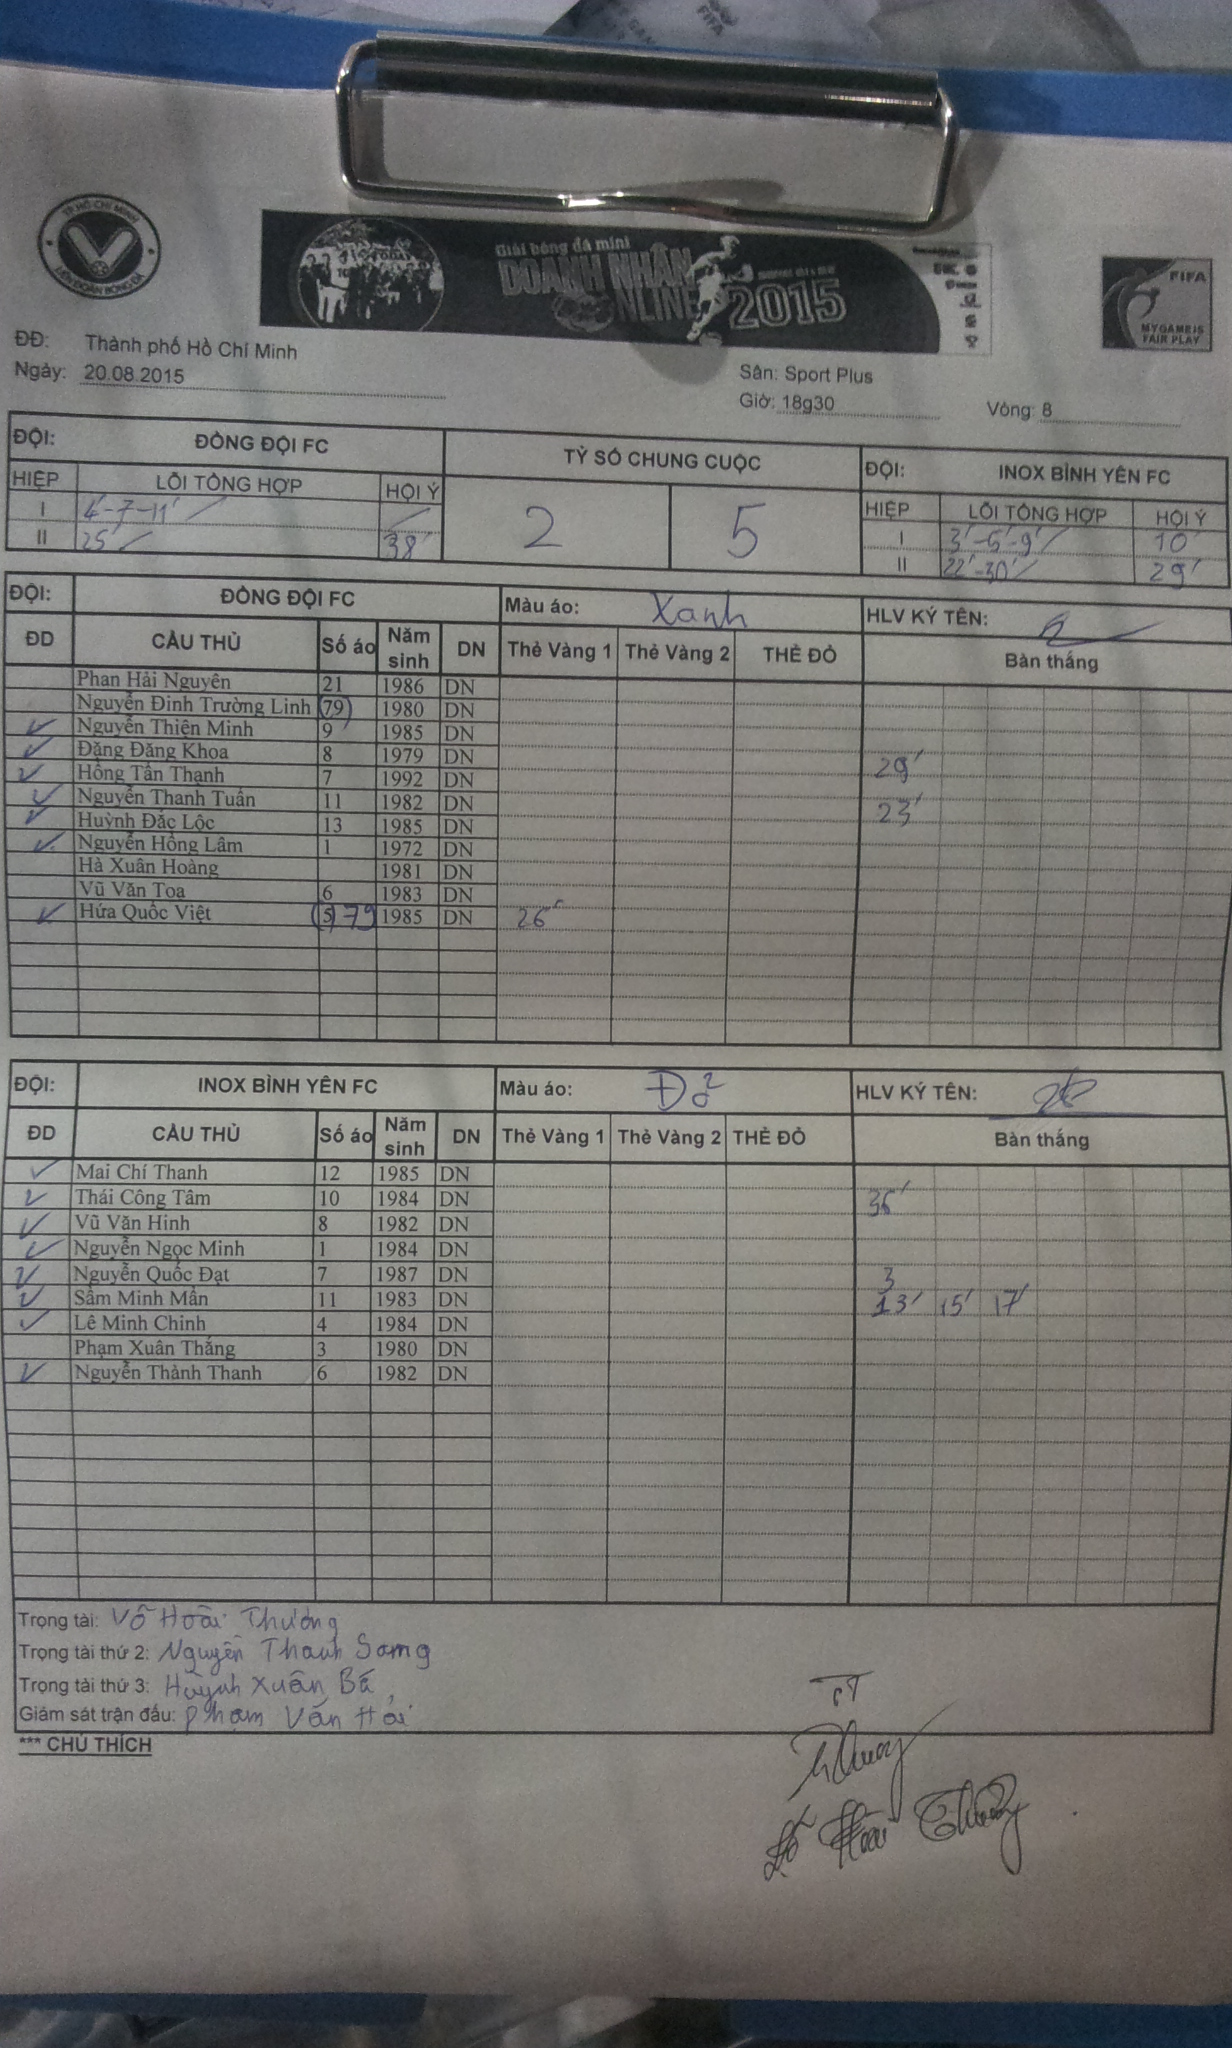 FIFA
TP HỒ CHÍ MINH
LIÊN ĐOÀN BÓNG ĐÁ
Giải bóng đá mini
DOANH NHÂN
NLINE 2015
FIFA
MY GAME IS
FAIR PLAY
ĐĐ: Thành phố Hồ Chí Minh
Ngày: 20.08.2015
Sân: Sport Plus
Giờ: 18g30 Vòng: 8
ĐỘI: ĐỒNG ĐỘI FC TỶ SỐ CHUNG CUỘC ĐỘI: INOX BÌNH YÊN FC
HIỆP LỖI TỔNG HỢP HỘI Ý 2 5 HIỆP LỖI TỔNG HỢP HỘI Ý
I 4'-7-11' I 3'-6'-9' 10'
II 25' 38' II 22'-30' 29'
ĐỘI: ĐỒNG ĐỘI FC Màu áo: Xanh HLV KÝ TÊN:
ĐD CẦU THỦ Số áo Năm sinh DN Thẻ Vàng 1 Thẻ Vàng 2 THẺ ĐỎ Bàn thắng
Phan Hải Nguyên 21 1986 DN
Nguyễn Đinh Trường Linh 79 1980 DN
Nguyễn Thiện Minh 9 1985 DN
Đặng Đăng Khoa 8 1979 DN
Hồng Tấn Thạnh 7 1992 DN 29'
Nguyễn Thanh Tuấn 11 1982 DN
Huỳnh Đắc Lộc 13 1985 DN 23'
Nguyễn Hồng Lâm 1 1972 DN
Hà Xuân Hoàng 1981 DN
Vũ Văn Tọa 6 1983 DN
Hứa Quốc Việt (5) 79 1985 DN 26'
ĐỘI: INOX BÌNH YÊN FC Màu áo: Đỏ HLV KÝ TÊN:
ĐD CẦU THỦ Số áo Năm sinh DN Thẻ Vàng 1 Thẻ Vàng 2 THẺ ĐỎ Bàn thắng
Mai Chí Thanh 12 1985 DN
Thái Công Tâm 10 1984 DN 36'
Vũ Văn Hinh 8 1982 DN
Nguyễn Ngọc Minh 1 1984 DN
Nguyễn Quốc Đạt 7 1987 DN 3
Sầm Minh Mẫn 11 1983 DN 13' 15' 17'
Lê Minh Chinh 4 1984 DN
Phạm Xuân Thắng 3 1980 DN
Nguyễn Thành Thanh 6 1982 DN
Trọng tài: Võ Hoài Thương
Trọng tài thứ 2: Nguyễn Thanh Sang
Trọng tài thứ 3: Huỳnh Xuân Bá
Giám sát trận đấu: Phạm Văn Hải
*** CHÚ THÍCH
TT